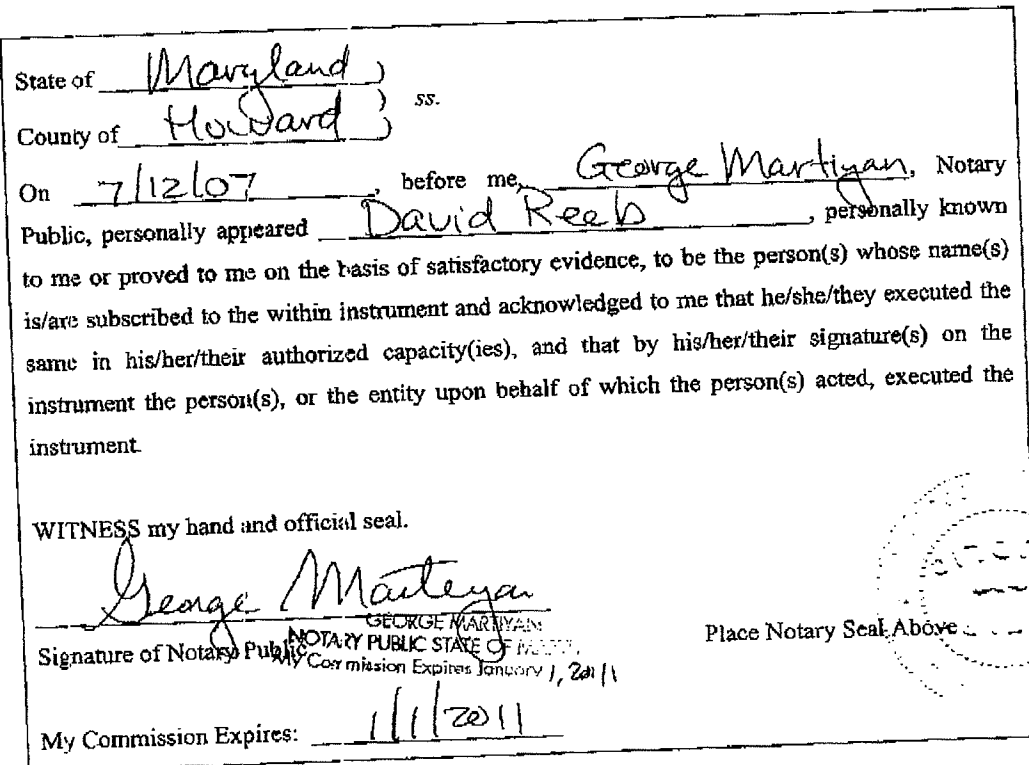 State of Maryland )
) ss.
County of Howard )
On 7/12/07, before me, George Martiyan, Notary
Public, personally appeared David Reeb, personally known
to me or proved to me on the basis of satisfactory evidence, to be the person(s) whose name(s)
is/are subscribed to the within instrument and acknowledged to me that he/she/they executed the
same in his/her/their authorized capacity(ies), and that by his/her/their signature(s) on the
instrument the person(s), or the entity upon behalf of which the person(s) acted, executed the
instrument.
WITNESS my hand and official seal.
George Martiyan
GEORGE MARTIYAN
NOTARY PUBLIC STATE OF
My Commission Expires January 1, 2011
Signature of Notary Public
Place Notary Seal Above
My Commission Expires: 1/1/2011